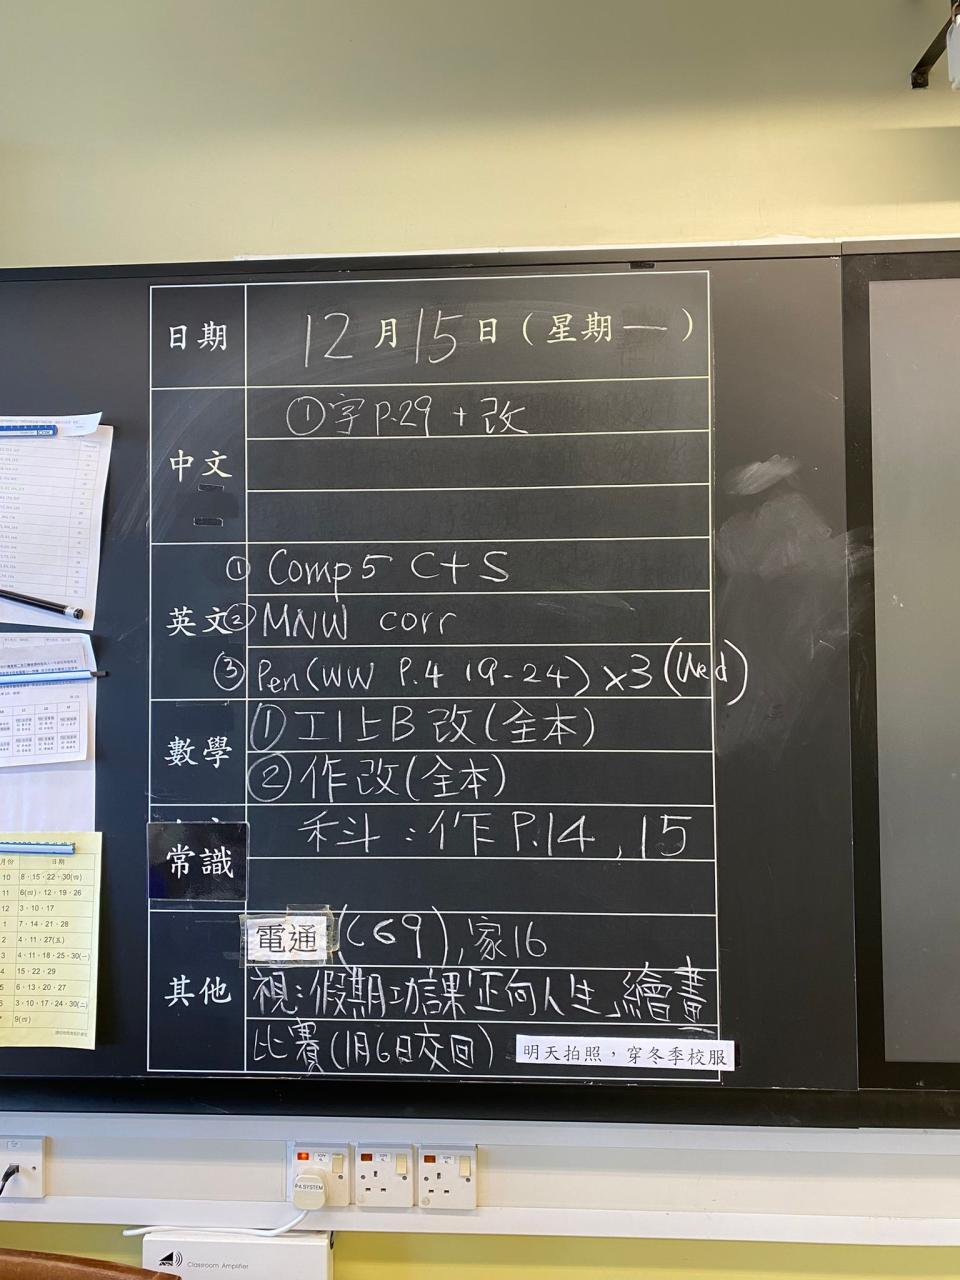 日期 12月15日（星期一）
中文 ①字P.29 + 改
英文 ① Comp 5 C+S
② MNW corr
③ Pen (WW P.4 19-24) x3 (Wed)
數學 ① 工1上B 改(全本)
② 作改(全本)
常識 科斗：作P.14, 15
其他 電通 (69), 家16
視：假期功課「正向人生」繪畫
比賽(1月6日交回) 明天拍照，穿冬季校服
月份 日期
10 8、15、22、30(四)
11 6(四)、12、19、26
12 3、10、17
1 7、14、21、28
2 4、11、27(五)
3 4、11、18、25、30(一)
4 15、22、29
5 6、13、20、27
6 3、10、17、24、30(二)
9(四)
P.A.SYSTEM
Classroom Amplifier